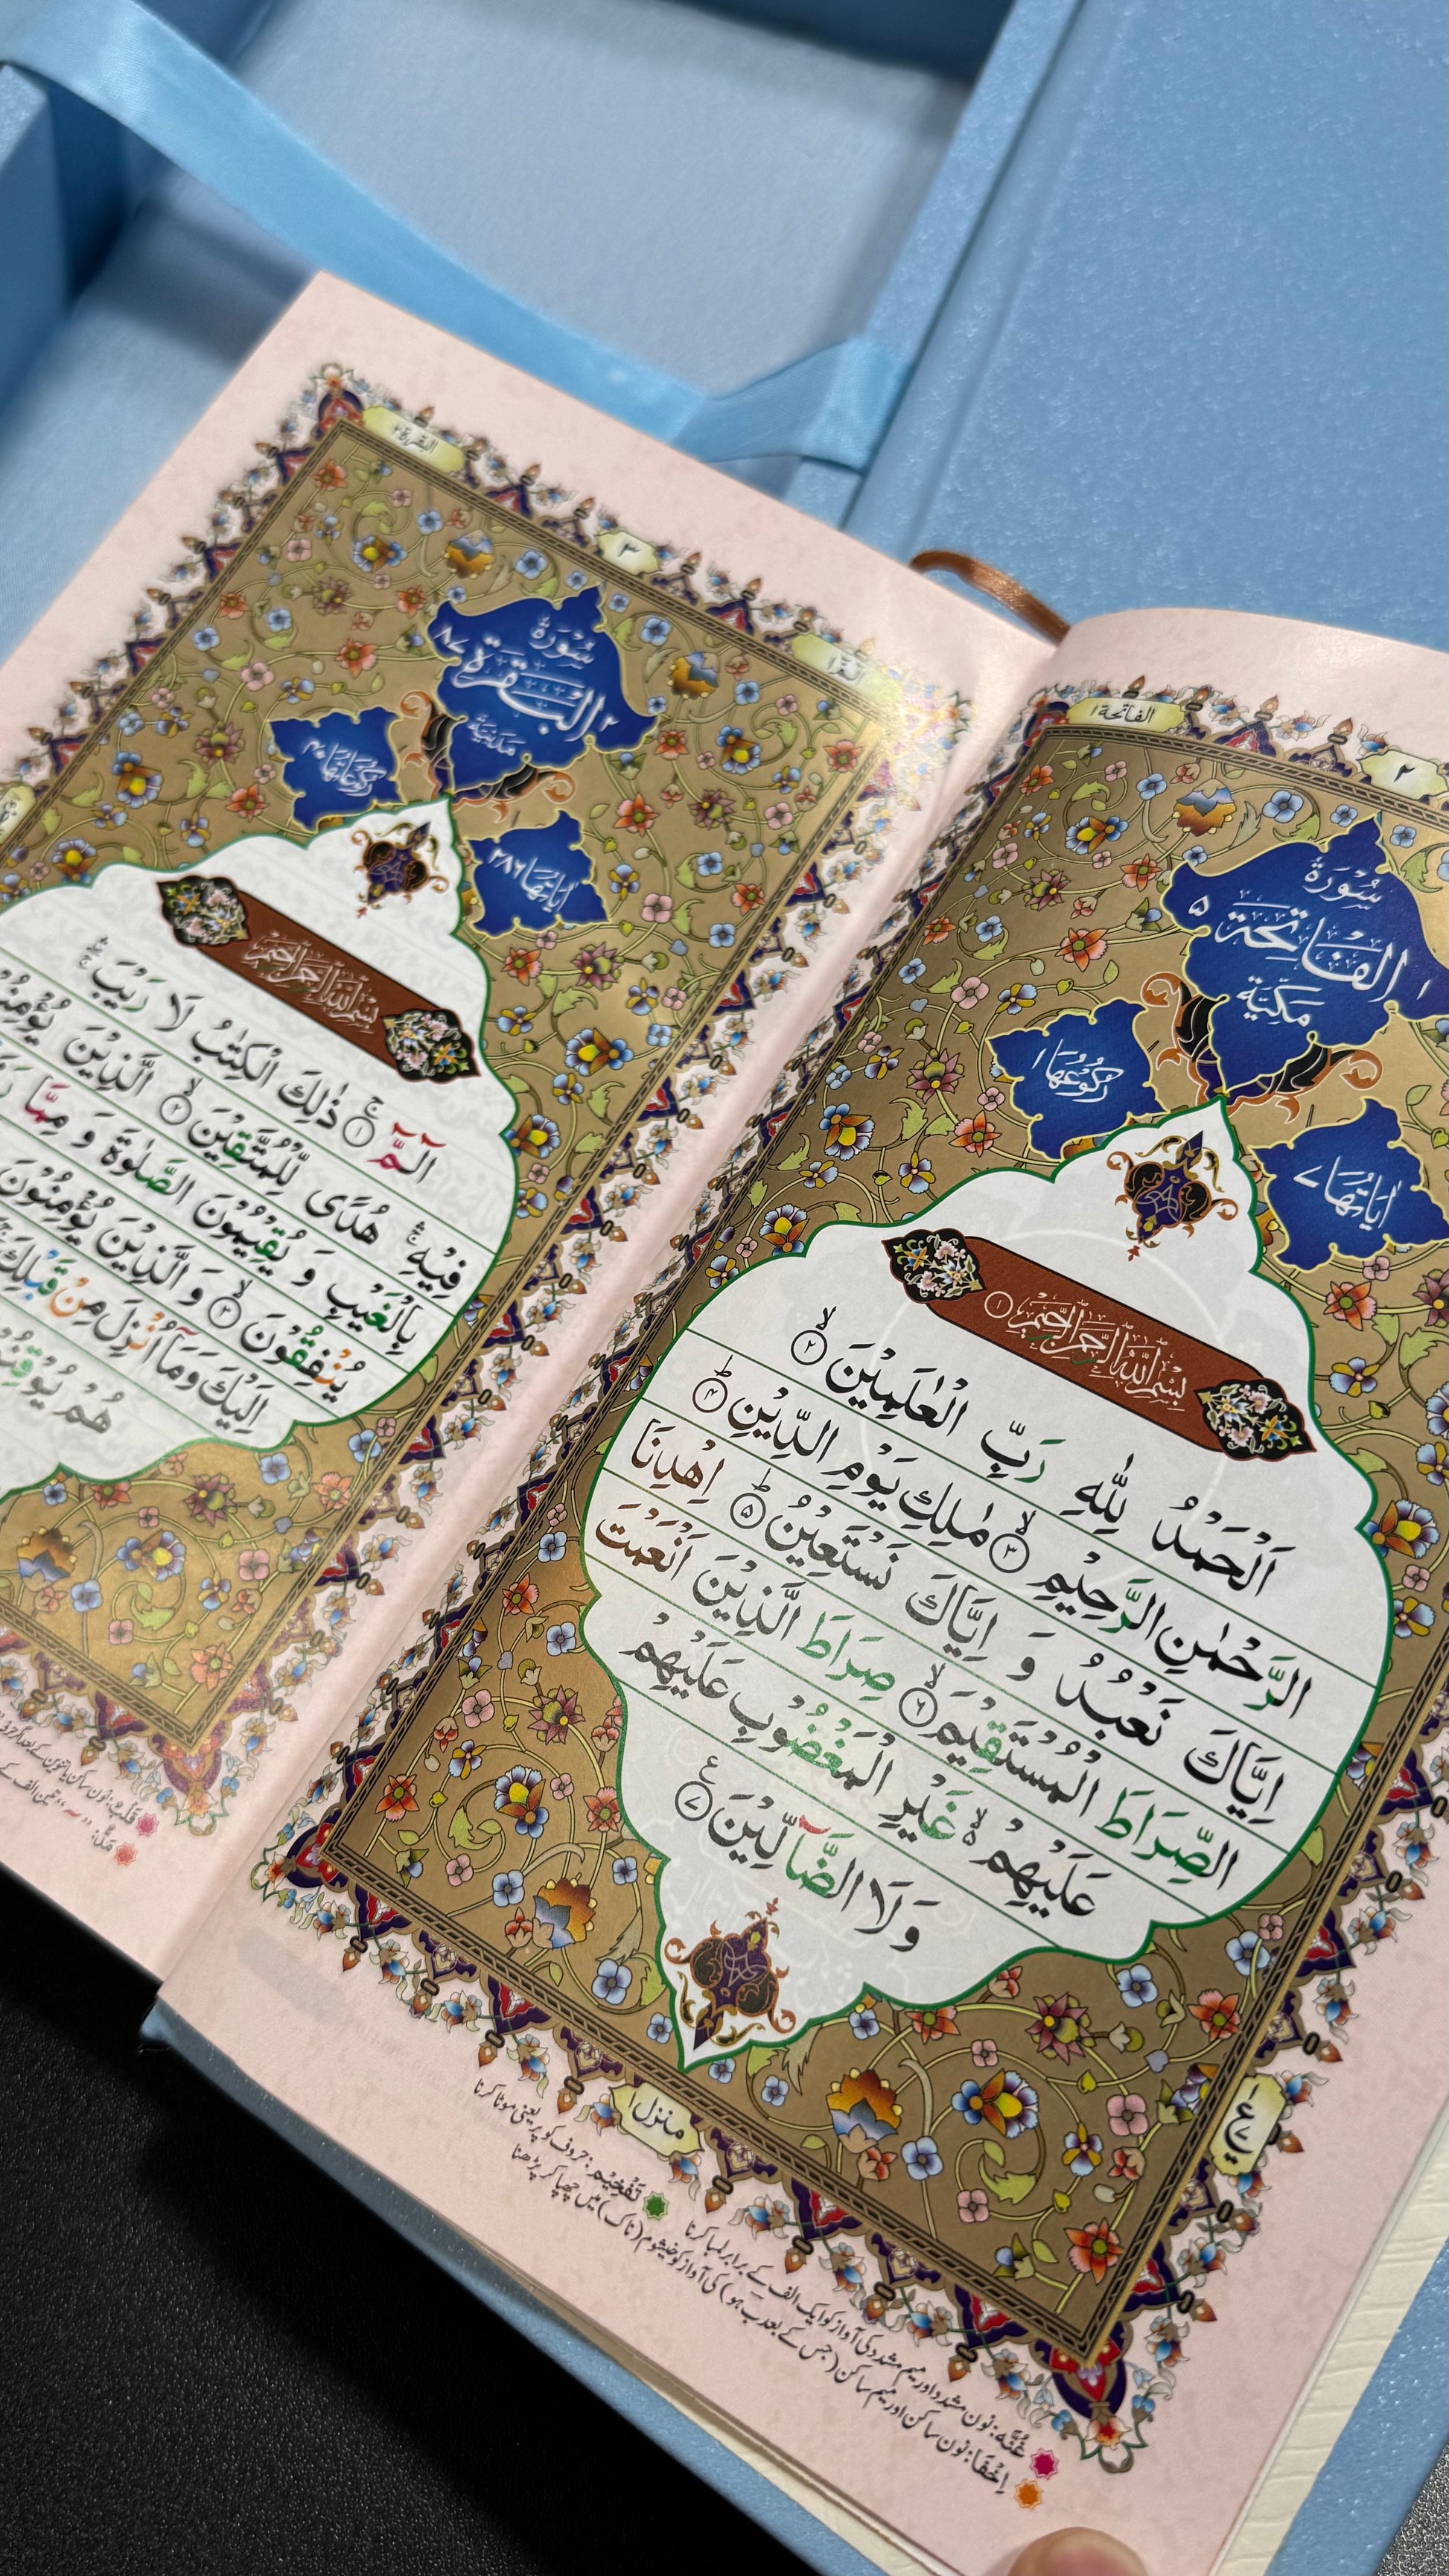 الفاتحة ١
٢
سُوْرَةُ
١ الفَاتِحَة ٥
مَكِّيَّةٌ
اٰيَاتُهَا ٧
رُكُوْعُهَا ١
بِسْمِ اللّٰهِ الرَّحْمٰنِ الرَّحِيْمِ ①
اَلْحَمْدُ لِلّٰهِ رَبِّ الْعٰلَمِيْنَ ۙ②
الرَّحْمٰنِ الرَّحِيْمِ ۙ③ مٰلِكِ يَوْمِ الدِّيْنِ ؕ④
اِيَّاكَ نَعْبُدُ وَ اِيَّاكَ نَسْتَعِيْنُ ؕ⑤ اِهْدِنَا
الصِّرَاطَ الْمُسْتَقِيْمَ ۙ⑥ صِرَاطَ الَّذِيْنَ اَنْعَمْتَ
عَلَيْهِمْ ۙ۬ غَيْرِ الْمَغْضُوْبِ عَلَيْهِمْ
وَ لَا الضَّآلِّيْنَ ⑦ ع
ع ٧
منزل ١
تَفْخِيْم: حروف کو پُر یعنی موٹا کرنا
غُنَّه: نون مشدد اور میم مشدد کی آواز کو ایک الف کے برابر لمبا کرنا
اِخْفَا: نون ساکن اور میم ساکن (جس کے بعد ب ہو) کی آواز کو خیشوم (ناک) میں چھپا کر پڑھنا
الٓمّٓ ١
٣
البقرة ٢
سُوْرَةُ
٢ البَقَرَة ٨٧
مَدَنِيَّةٌ
اٰيَاتُهَا ٢٨٦
رُكُوْعَاتُهَا ٤٠
بِسْمِ اللّٰهِ الرَّحْمٰنِ الرَّحِيْمِ
الٓمّٓ ۚ① ذٰلِكَ الْكِتٰبُ لَا رَيْبَ ۖۛ
فِيْهِ ۛۚ هُدًى لِّلْمُتَّقِيْنَ ۙ② الَّذِيْنَ
بِالْغَيْبِ وَ يُقِيْمُوْنَ الصَّلٰوةَ وَ مِمَّا
يُنْفِقُوْنَ ۙ③ وَ الَّذِيْنَ يُؤْمِنُوْنَ
اِلَيْكَ وَ مَاۤ اُنْزِلَ مِنْ قَبْلِكَ
هُمْ
قَلْب: نون ساکن یا تنوین کے بعد اگر حرف
مَدّ: